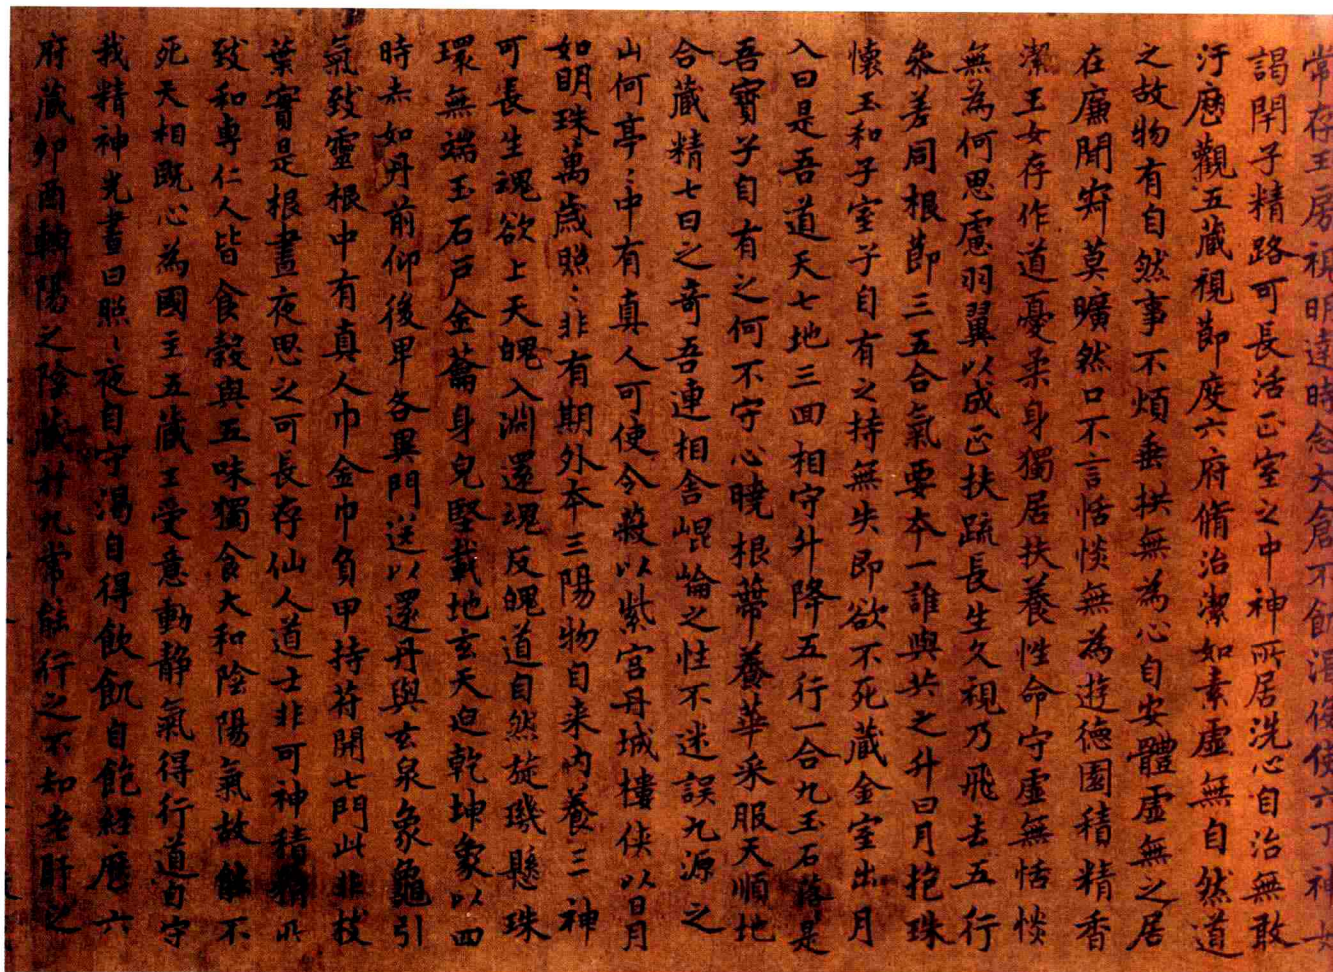 常存玉房視明達時念大倉不飢渴役使六丁神女
謁閇子精路可長活正室之中神所居洗心自治無敢
汙歷觀五藏視節度六府脩治潔如素虛無自然道
之故物有自然事不煩垂拱無為心自安體虛無之居
在廉閒寂莫曠然口不言恬惔無為遊德園積精香
潔玉女存作道憂柔身獨居扶養性命守虛無恬惔
無為何思慮羽翼以成正扶疏長生久視乃飛去五行
叅差同根節三五合氣要本一誰與共之升日月抱珠
懷玉和子室子自有之持無失即欲不死藏金室出月
入日是吾道天七地三回相守升降五行一合九玉石落是
吾寶子自有之何不守心曉根蔕養華采服天順地
合藏精七日之奇吾連相舍崐崘之性不迷誤九源之
山何亭〻中有真人可使令蔽以紫宮丹城樓俠以日月
如明珠萬歲照〻非有期外本三陽物自来內養三神
可長生魂欲上天魄入淵還魂反魄道自然旋璣懸珠
環無端玉石戶金籥身皃堅載地玄天迫乾坤象以四
時赤如丹前仰後卑各異門送以還丹與玄泉象龜引
氣致靈根中有真人巾金巾負甲持苻開七門此非枝
葉實是根晝夜思之可長存仙人道士非可神積精所
致和專仁人皆食糓與五味獨食大和陰陽氣故能不
死天相既心為國主五藏王受意動靜氣得行道自守
我精神光晝日照〻夜自守渴自得飲飢自飽經歷六
府藏卯酉轉陽之陰藏於九常能行之不知老肝之